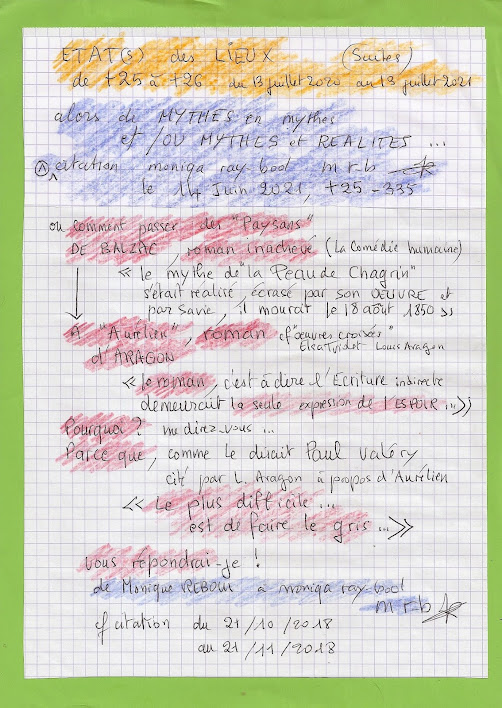 ETAT(s) des LIEUX (Suites)
de +25 à +26 du 13 juillet 2020 au 13 juillet 2021
alors de MYTHES en mythes
et /OU MYTHES et REALITES ...
citation moniqa ray-boot m r-b
le 14 Juin 2021, +25 - 335
ou comment passer des "Paysans"
DE BALZAC, roman inachevé (La Comédie humaine)
<< le mythe de "la Peau de Chagrin"
s'était réalisé, écrasé par son OEUVRE et
par sa vie, il mourat le 18 août 1850 >>
A "Aurélien", roman cf "oeuvres croisées"
d'ARAGON Elsa Triolet - Louis Aragon
<< le roman, c'est à dire l'Ecriture indirecte
demeurait la seule expression de l'ESPOIR ... >>
Pourquoi ? me direz-vous ...
Parce que, comme le disait Paul Valéry
cité par L. Aragon à propos d'Aurélien
<< Le plus difficile ...
est de faire le gris ... >>
vous répondrai-je !
de Monique REBOUL à moniqa ray-boot
m r-b
cf citation du 21/10/2018
au 21/11/2018